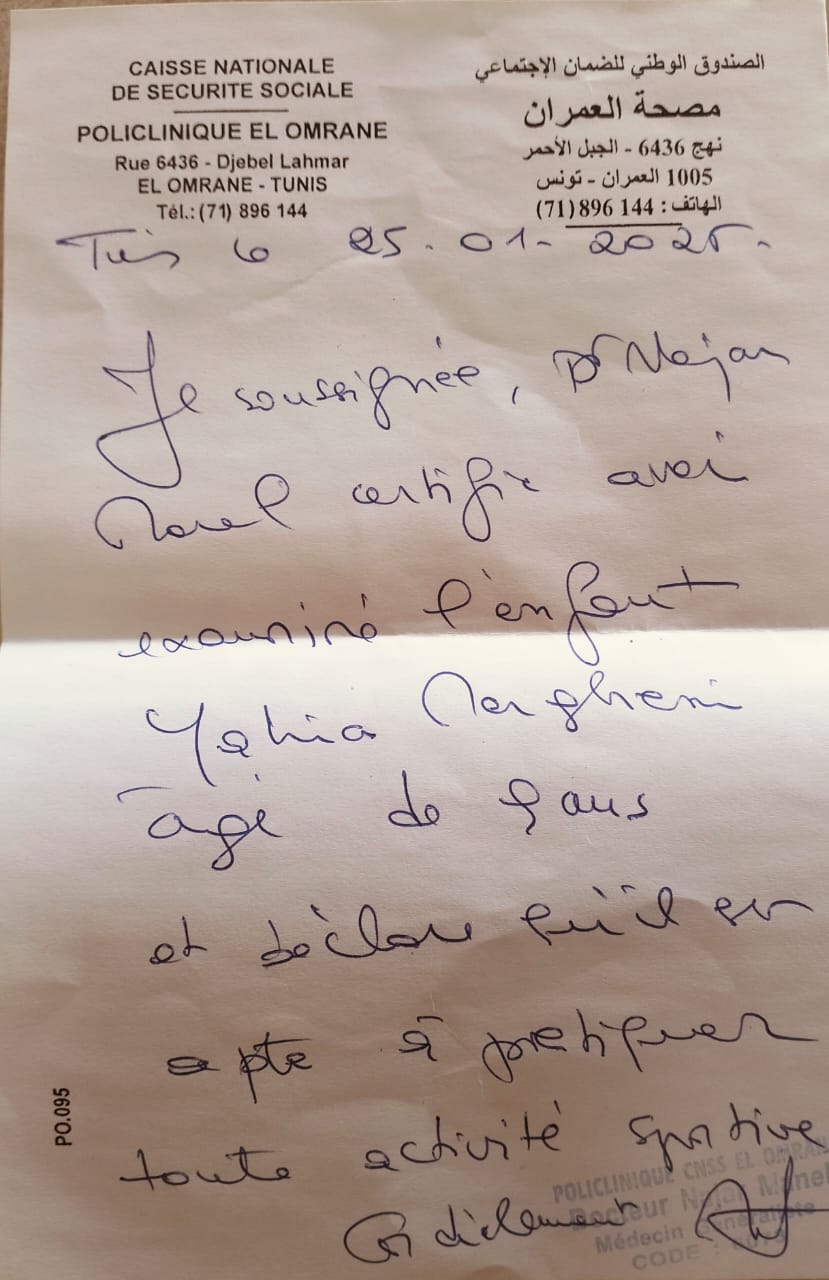 CAISSE NATIONALE
DE SECURITE SOCIALE
POLICLINIQUE EL OMRANE
Rue 6436 - Djebel Lahmar
EL OMRANE - TUNIS
Tél.: (71) 896 144
الصندوق الوطني للضمان الإجتماعي
مصحة العمران
نهج 6436 - الجبل الأحمر
1005 العمران - تونس
الهاتف : 144 896 (71)
Tunis le 25-01-2025.
Je soussignée, Dr Najar
Manel certifie avoir
examiné l'enfant
Yahia Margheni
âgé de ans
et déclare qu'il est
apte à pratiquer
toute activité sportive
Cordialement
PO.095
POLICLINIQUE CNSS EL OMRANE
Docteur Najar Manel
Médecin Généraliste
CODE :